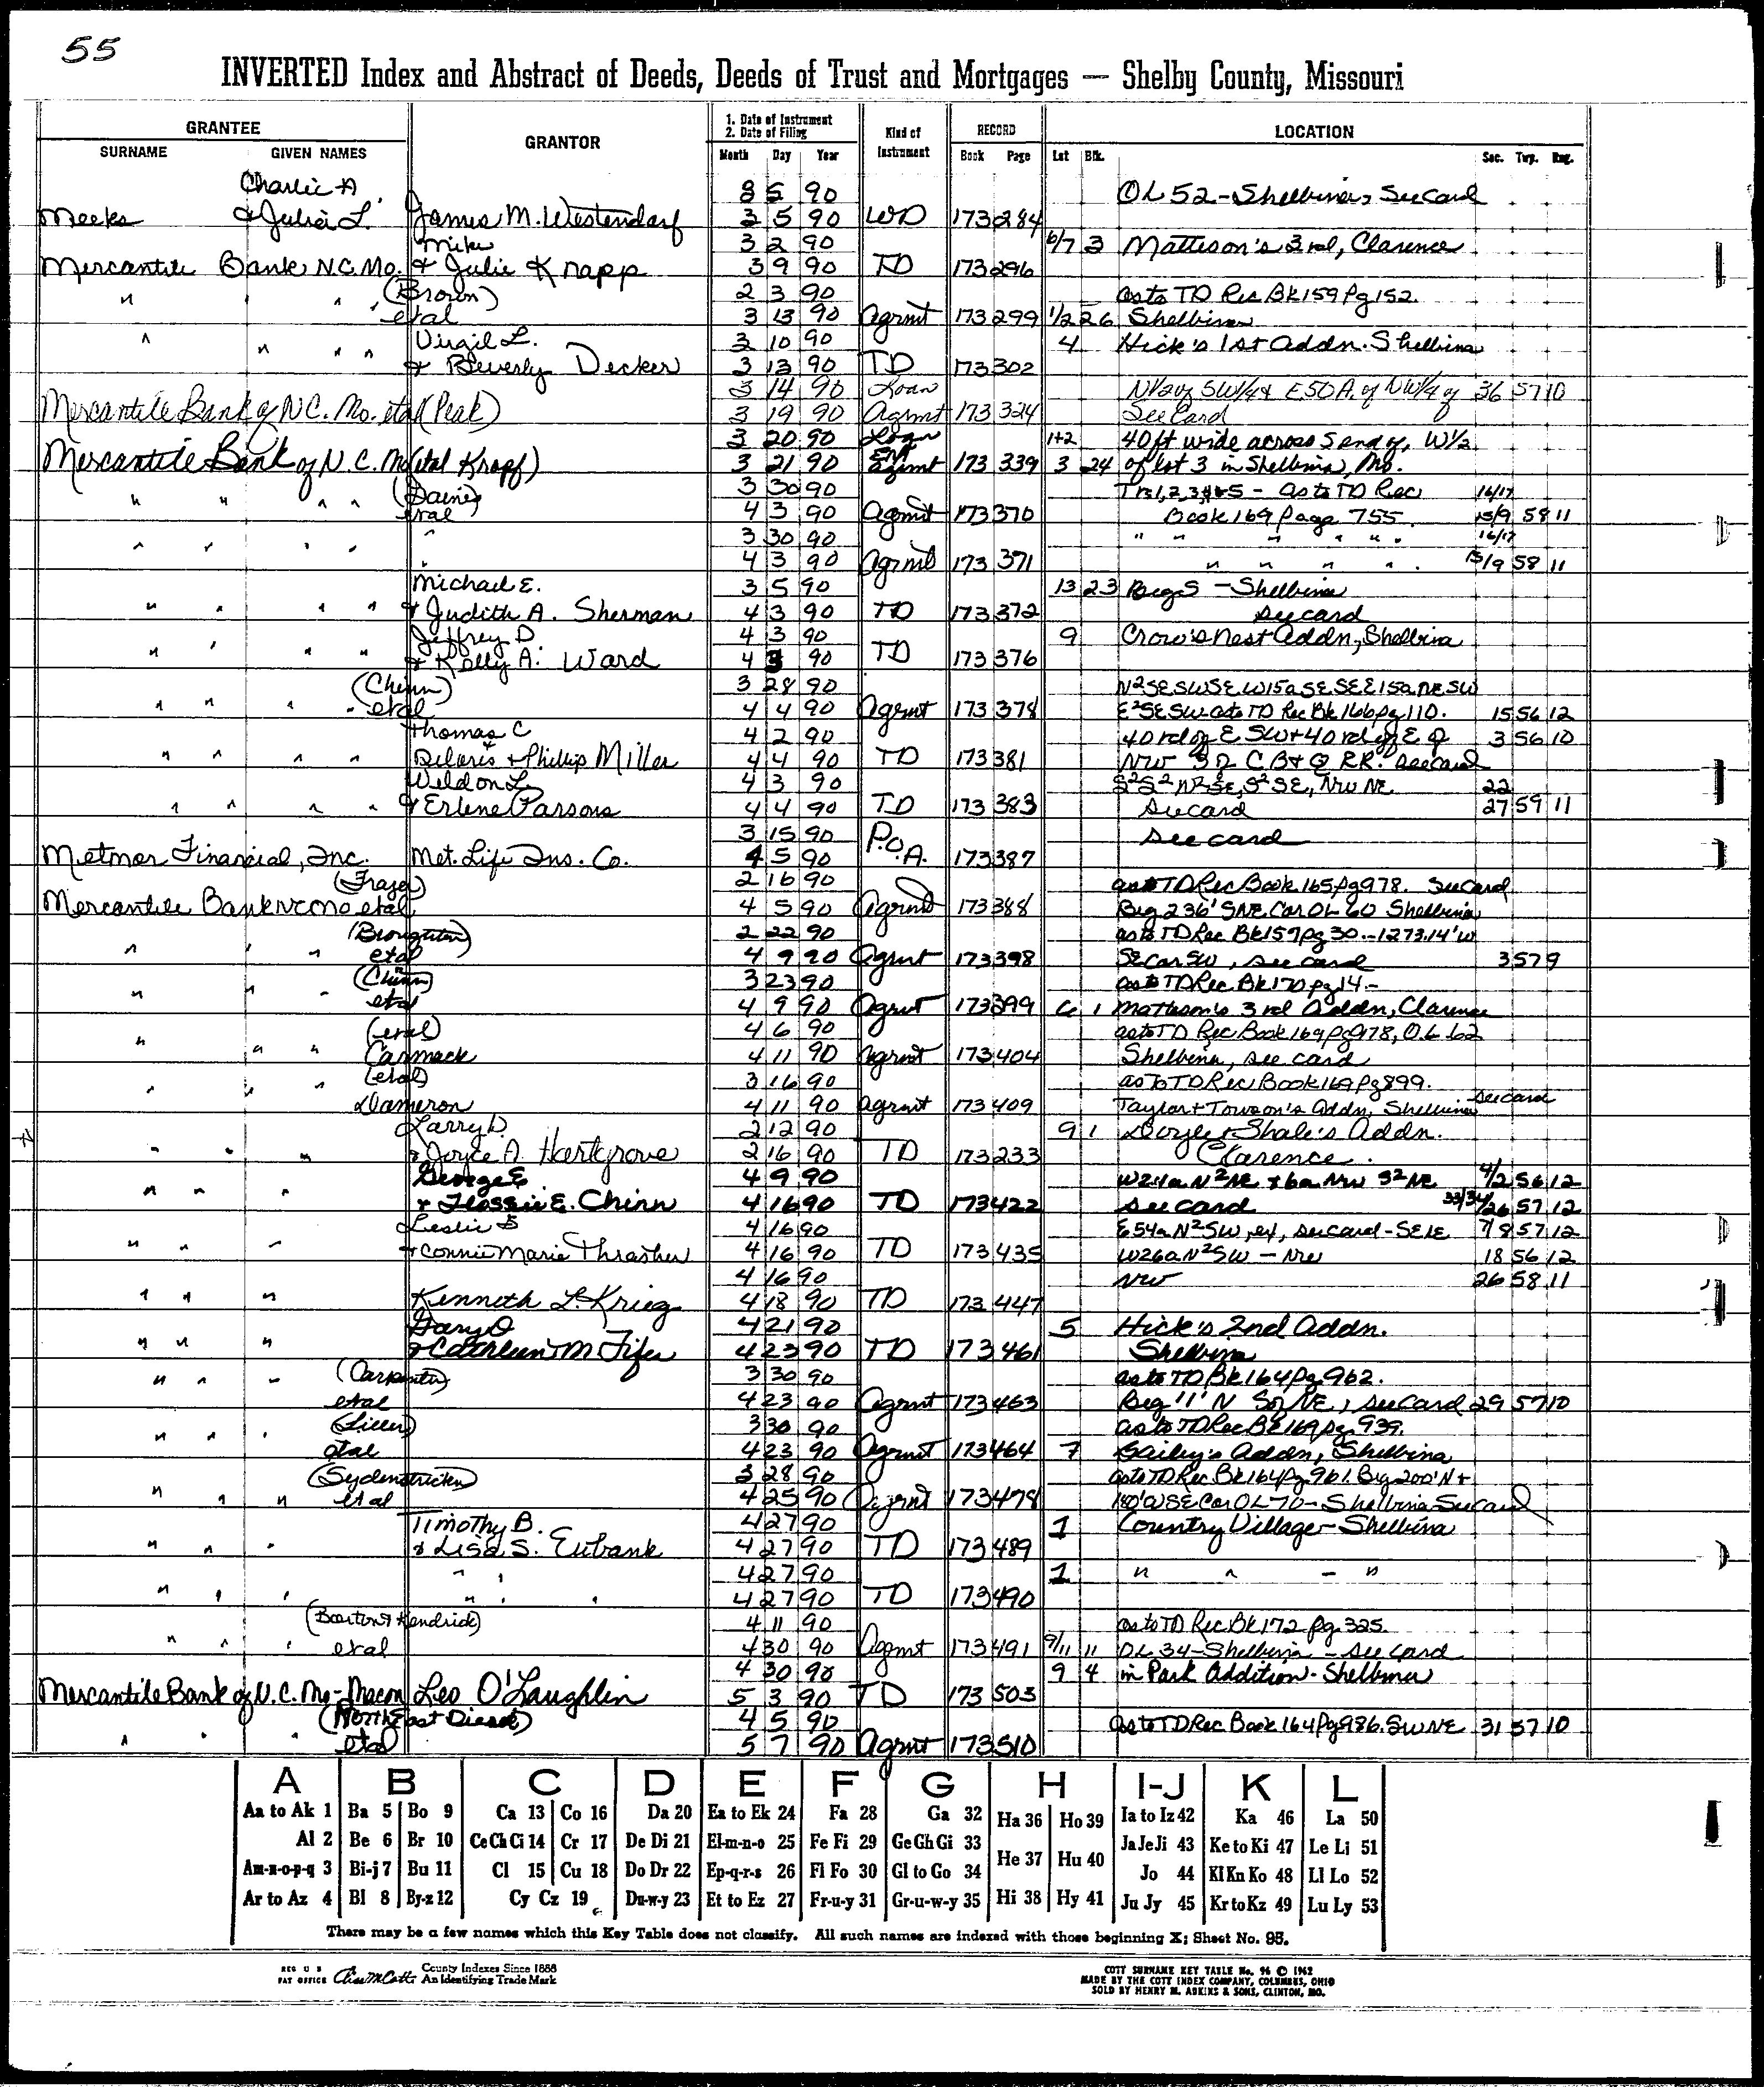 55
INVERTED Index and Abstract of Deeds, Deeds of Trust and Mortgages — Shelby County, Missouri
GRANTEE GRANTOR 1. Date of Instrument 2. Date of Filing Kind of Instrument RECORD LOCATION
SURNAME GIVEN NAMES Month Day Year Book Page Lot Blk. Sec. Twp. Rng.
Charlie A 8 5 90 OL 52 - Shelbina, See Card
Meeks & Julia L. James M. Westendorf 3 5 90 WD 173 284
Mike 3 2 90 6/7 3 Matteson's 3rd, Clarence
Mercantile Bank N.C. Mo. & Julie Knapp 3 9 90 TD 173 296
" " (Brown) 2 3 90 as to TD Rec Bk 159 Pg 152.
etal 3 13 90 Agrmt 173 299 1/2 26 Shelbina
" " " " Virgil L. 3 10 90 4 Hick's 1st Addn. Shelbina
& Beverly Decker 3 13 90 TD 173 302
3 14 90 Loan N1/2 of SW1/4 & E50A. of NW1/4 of 36 57 10
Mercantile Bank of N.C. Mo. etal (Peak) 3 19 90 Agrmt 173 324 See Card
3 20 90 Loan 1+2 40 ft wide across S end of, W1/2
Mercantile Bank of N.C. Mo (etal Knapp) 3 21 90 Agrmt 173 339 3 24 of lot 3 in Shelbina, Mo.
" " " " 3 30 90 Tr 1,2,3,4+5 - as to TD Rec 16/17
etal 4 3 90 Agrmt 173 370 Book 169 page 755. 15/9 58 11
" " " " " 3 30 90 " " " " " . 16/17
4 3 90 Agrmt 173 371 " " " " . 15/9 58 11
Michael E. 3 5 90 13 23 Beg S - Shelbina
" " " " & Judith A. Sherman 4 3 90 TD 173 372 see card
Jeffrey D. 4 3 90 9 Crow's Nest Addn, Shelbina
" " " " & Kelly A. Ward 4 3 90 TD 173 376
(Chinn) 3 28 90 N2SE SWSE W15a SE SE E15a NE SW
" " " " etal 4 4 90 Agrmt 173 378 E2SE SW as to TD Rec Bk 166 pg 110. 15 56 12
Thomas C 4 2 90 40 rd of E SW + 40 rd of E of 3 56 10
" " " " Deloris & Phillip Miller 4 4 90 TD 173 381 NW S of C.B & Q RR. see card
Weldon L. 4 3 90 S2S2 N2SE, S2SE, NW NE 22
" " " " & Erlene Parsons 4 4 90 TD 173 383 see card 27 59 11
3 15 90 P.O.A. see card
Metmor Financial, Inc. Met. Life Ins. Co. 4 5 90 173 387
(Frazer) 2 16 90 as to TD Rec Book 165 Pg 978. See Card
Mercantile Bank NC MO etal 4 5 90 Agrmt 173 388 Beg 236' S NE Cor OL 60 Shelbina
(Broughton) 2 22 90 as to TD Rec Bk 157 pg 30. - 1273.14' W
" " " etal 4 9 90 Agrmt 173 398 SE Cor SW, see card 3 57 9
(Chinn) 3 23 90 as to TD Rec Bk 170 pg 14 -
" " " etal 4 9 90 Agrmt 173 399 6 1 Matteson's 3rd Addn, Clarence
(etal) 4 6 90 as to TD Rec Book 169 Pg 978, O.L. 62
" " " Carmack 4 11 90 Agrmt 173 404 Shelbina, see card
(etal) 3 16 90 as to TD Rec Book 169 Pg 899.
" " " Dameron 4 11 90 Agrmt 173 409 Taylor + Towson's Addn, Shelbina see card
Larry D. 2 12 90 9 1 Doyle & Shale's Addn.
" " " & Joyce A. Hartgrove 2 16 90 TD 173 233 Clarence.
George E. 4 9 90 W24a N2NE + 6a NW S2NE 4/2 56 12
" " " & Flossie E. Chinn 4 16 90 TD 173 422 see card 33/34/26 57 12
Leslie 4 16 90 E54a N2SW, ex, see card - SE E 7/8 57 12
" " " & Connie Marie Thrasher 4 16 90 TD 173 435 W26a N2SW - NW 18 56 12
4 16 90 NW 26 58 11
" " " Kenneth L. Krieg 4 18 90 TD 173 447
Gary O 4 21 90 5 Hick's 2nd Addn.
" " " & Cathleen M Fifer 4 23 90 TD 173 461 Shelbina
(Carpenter) 3 30 90 as to TD Bk 164 Pg 962.
" " " etal 4 23 90 Agrmt 173 463 Beg 11' N NE, see card 29 57 10
3 30 90 as to TD Rec Bk 169 pg 939.
" " " etal 4 23 90 Agrmt 173 464 7 Bailey's Addn, Shelbina
(Sydenstricker) 3 28 90 as to TD Rec Bk 164 Pg 961. Beg 200' N +
" " " etal 4 25 90 Agrmt 173 478 180' W SE Cor OL 70 - Shelbina See Card
Timothy B. 4 27 90 1 Country Village - Shelbina
" " " & Lisa S. Eubank 4 27 90 TD 173 489
" " 4 27 90 1 " " - "
" " " " " 4 27 90 TD 173 490
(Barton & Kendrick) 4 11 90 as to TD Rec Bk 172 pg 325.
" " " etal 4 30 90 Agmt 173 491 9/11 11 OL 34 - Shelbina - See Card
4 30 90 9 4 in Park Addition - Shelbina
Mercantile Bank of N.C. Mo - Macon Leo O'Laughlin 5 3 90 TD 173 503
(North East Diesel) 4 5 90 as to TD Rec Book 164 Pg 986. SW NE 31 57 10
" " " etal 5 7 90 Agrmt 173 510
A B C D E F G H I-J K L
Aa to Ak 1 Ba 5 Bo 9 Ca 13 Co 16 Da 20 Ea to Ek 24 Fa 28 Ga 32 Ha 36 Ho 39 Ia to Iz 42 Ka 46 La 50
Al 2 Be 6 Br 10 Ce Ch Ci 14 Cr 17 De Di 21 El-m-n-o 25 Fe Fi 29 Ge Gh Gi 33 He 37 Hu 40 Ja Je Ji 43 Ke to Ki 47 Le Li 51
Am-n-o-p-q 3 Bi-j 7 Bu 11 Cl 15 Cu 18 Do Dr 22 Ep-q-r-s 26 Fl Fo 30 Gl to Go 34 Jo 44 Kl Kn Ko 48 Ll Lo 52
Ar to Az 4 Bl 8 By-z 12 Cy Cz 19 Du-w-y 23 Et to Ez 27 Fr-u-y 31 Gr-u-w-y 35 Hi 38 Hy 41 Ju Jy 45 Kr to Kz 49 Lu Ly 53
There may be a few names which this Key Table does not classify. All such names are indexed with those beginning X; Sheet No. 95.
REG U S PAT OFFICE County Indexes Since 1888 An Identifying Trade Mark
COTT SURNAME KEY TABLE No. 96 © 1962
MADE BY THE COTT INDEX COMPANY, COLUMBUS, OHIO
SOLD BY HENRY M. ADKINS & SONS, CLINTON, MO.